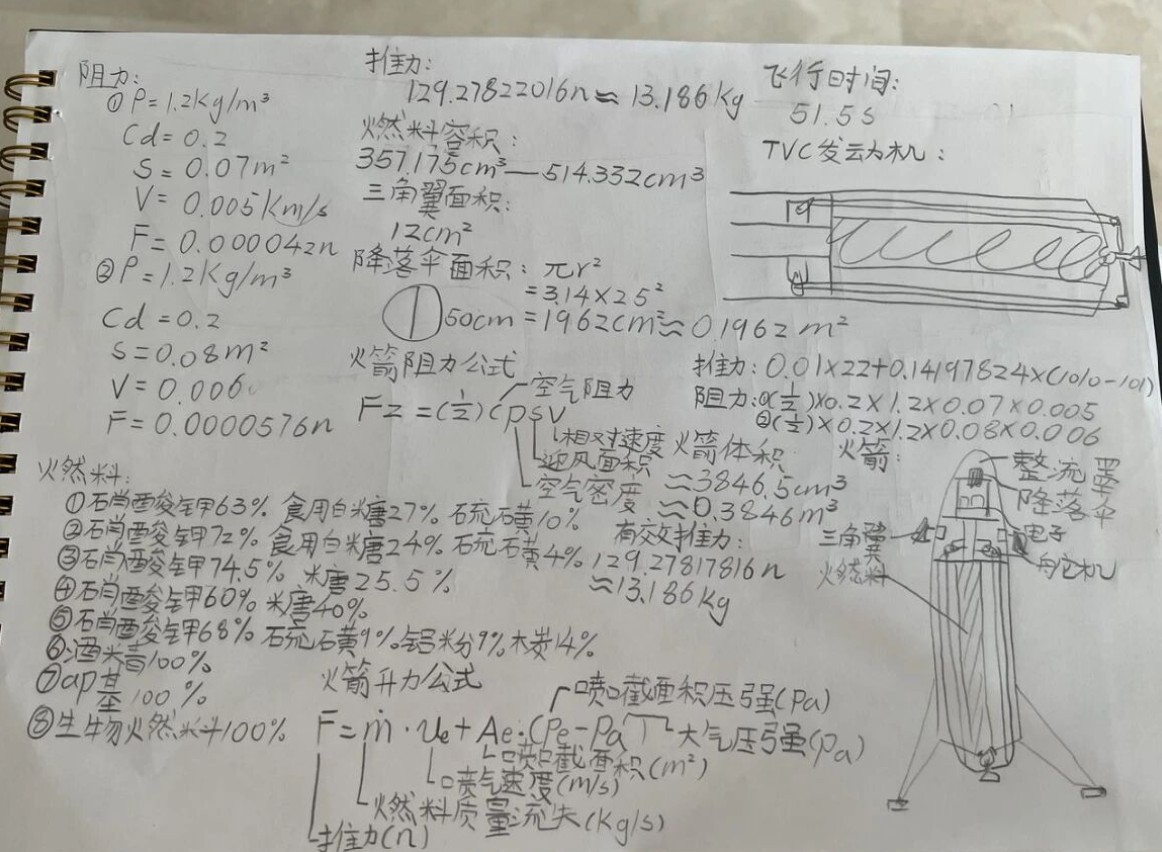 阻力:
①P=1.2kg/m³
Cd=0.2
S=0.07m²
V=0.005Km/s
F=0.000042n
②P=1.2Kg/m³
Cd=0.2
S=0.08m²
V=0.006
F=0.0000576n
推力:
129.27822016n≈13.186kg
燃料容积:
357.175cm³—514.332cm³
三角翼面积:
12cm²
降落伞面积:πr²
=3.14×25²
50cm=1962cm²≈0.1962m²
飞行时间:
51.5s
TVC发动机:
火箭阻力公式
空气阻力
Fz=(½)cpsv
相对速度
迎风面积
空气密度
火箭体积
≈3846.5cm³
≈0.3846m³
推力:0.01×22+0.14197824×(1010-101)
阻力:①(½)×0.2×1.2×0.07×0.005
②(½)×0.2×1.2×0.08×0.006
有效推力:
129.27817816n
≈13.186Kg
火箭:
整流罩
降落伞
电子
舵机
三角翼
燃料
燃料:
①硝酸钾63% 食用白糖27% 硫磺10%
②硝酸钾72% 食用白糖24% 硫磺4%
③硝酸钾74.5% 糖25.5%
④硝酸钾60% 糖40%
⑤硝酸钾68% 硫磺9% 铝粉9% 木炭14%
⑥酒精100%
⑦ap基100%
⑧生物燃料100%
火箭升力公式
喷口截面积压强(Pa)
F=ṁ·ue+Ae·(Pe-Pa
大气压强(pa)
喷口截面积(m²)
喷气速度(m/s)
燃料质量流失(Kg/s)
推力(n)